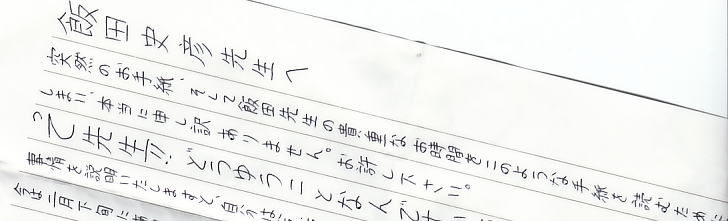 飯田史彦先生へ
突然のお手紙、そして飯田先生の貴重なお時間をこのような手紙を読むため
しまい、本当に申し訳ありません。お許し下さい。
って先生!!、どうゆうことなんです
事情を説明いたしますと、自分は
今は二月下旬に